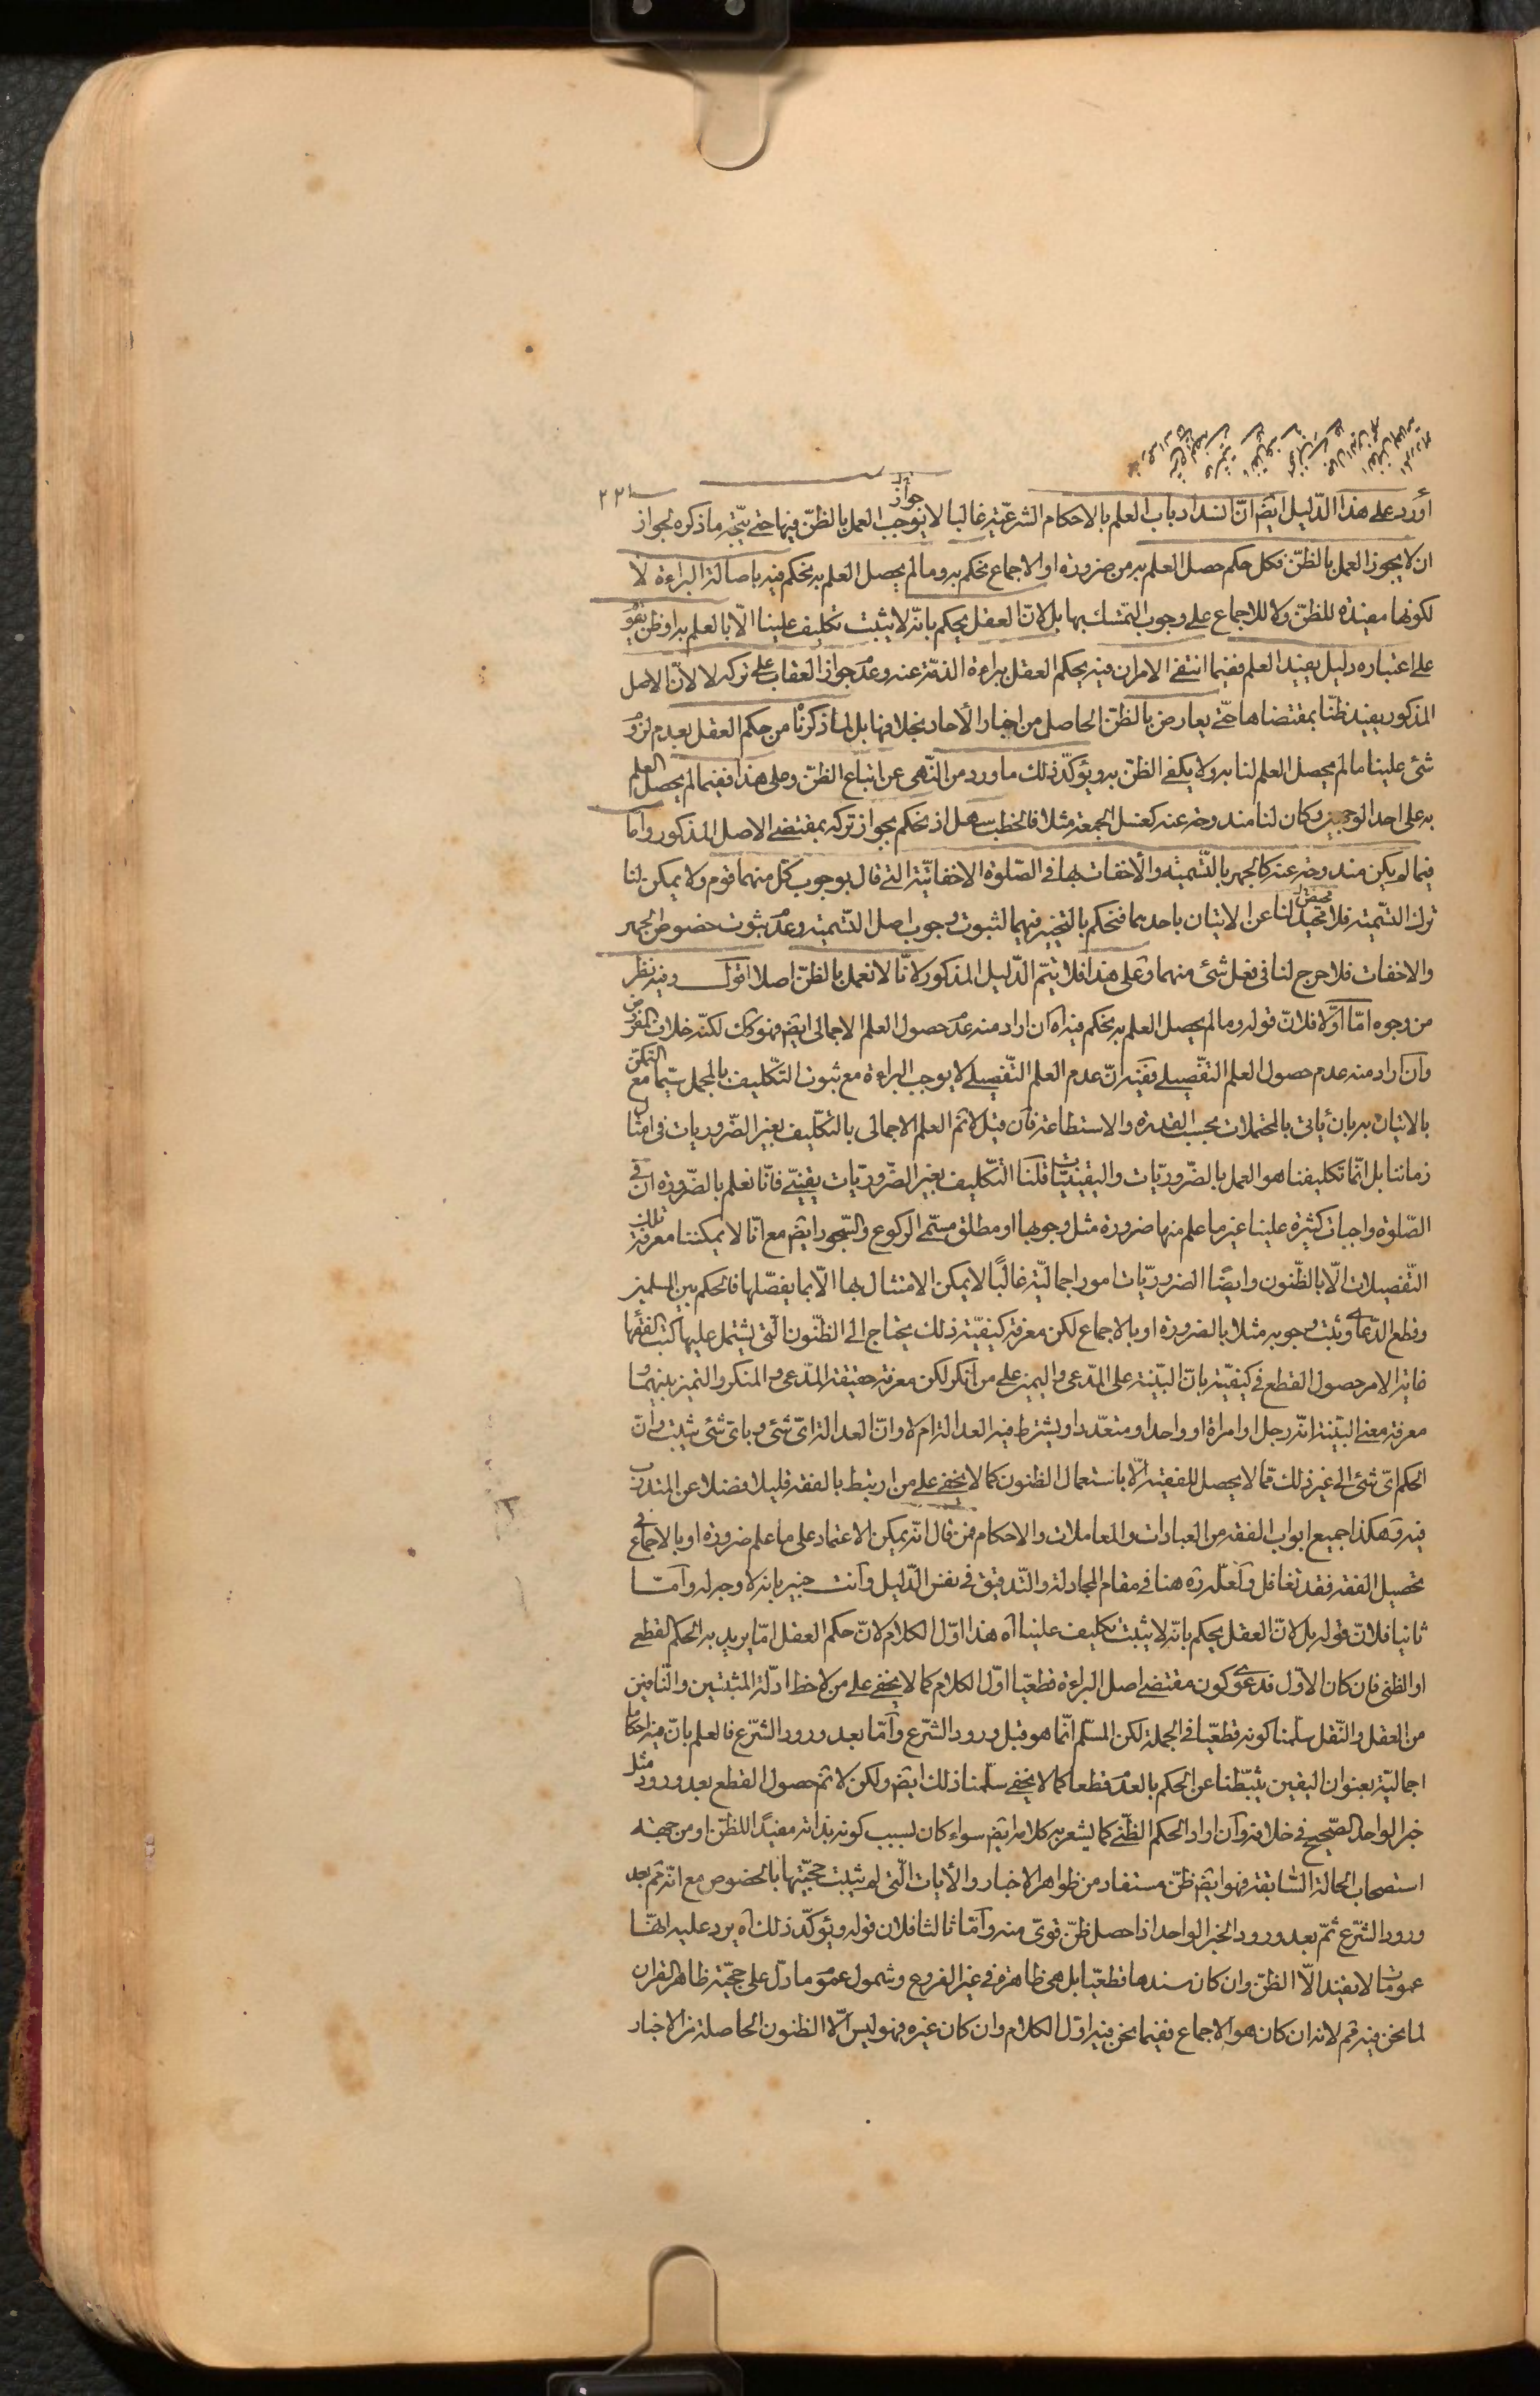 ٢٢١
أورد على هذا الدّليل ايضا انّ انسداد باب العلم بالاحكام الشرعيّة غالبا لا يوجب جواز العمل بالظنّ فيها حتى يتّجه ما ذكره لجواز
ان لا يجوز العمل بالظنّ فكل حكم حصل العلم به من ضرورة او الاجماع نحكم به وما لم يحصل العلم به نحكم فيه باصالة البراءة لا
لكونها مفيدة للظنّ ولا للاجماع على وجوب التمسّك بها بل لانّ العقل يحكم بانّه لا يثبت تكليف علينا الّا بالعلم به او ظن يقوم
على اعتباره دليل يفيد العلم ففيما انتفى الامران فيه يحكم العقل ببراءة الذمّة عنه وعدم جواز العقاب على تركه لا لانّ الاصل
المذكور يفيد ظنّا بمقتضاها حتّى يعارض بالظنّ الحاصل من اخبار الأحاد بخلافها بل لما ذكرنا من حكم العقل بعدم لزوم
شئ علينا ما لم يحصل العلم لنا به ولا يكفى الظنّ به ويؤكّد ذلك ما ورد من النّهى عن اتباع الظنّ وعلى هذا ففيما لم يحصل العلم
به على احد الوجهين وكان لنا مندوحة عنه كغسل الجمعة مثلا فالخطب سهل اذ نحكم بجواز تركه بمقتضى الاصل المذكور وامّا
فيما لم يكن مندوحة عنه كالجهر بالتّسمية والأخفات بها فى الصّلوة الاخفاتيّة التى قال بوجوب كل منهما قوم ولا يمكن لنا
ترك التّسمية فلا محيص لنا عن الاتيان باحدهما فنحكم بالتخيير فيهما لثبوت وجوب اصل التّسمية وعدم ثبوت خصوص الجهر
والاخفات فلا حرج لنا فى فعل شئ منهما وعلى هذا فلا يتمّ الدّليل المذكور لانّا لا نعمل بالظنّ اصلا اقول وفيه نظر
من وجوه امّا اوّلا فلانّ قوله وما لم يحصل العلم به نحكم فيه اه ان اراد منه عدم حصول العلم الاجمالى ايضا فهو كذلك لكنّه خلاف المفروض
وان اراد منه عدم حصول العلم التفّصيلى ففيه انّ عدم العلم التّفصيلى لا يوجب البراءة مع ثبوت التّكليف بالمجمل سيّما مع التمكّن
بالاتيان به بان يأتى بالمحتملات بحسب القدرة والاستطاعة فان قيل لا ثمّ العلم الاجمالى بالتّكليف بغير الضّروريات فى امثال
زماننا بل انّما تكليفنا هو العمل بالضّروريّات واليقينيّات قلنا التّكليف بغير الضّروريّات يقينّى فانّا نعلم بالضّرورة ان فى
الصّلوة واجبات كثيرة علينا غير ما علم منها ضرورة مثل وجوبها او مطلق مسمّى الركوع والسّجود ايضا مع انّا لا يمكننا معرفة تلك
التّفصيلات الّا بالظّنون وايضًا الضروريّات امور اجماليّة غالبًا لا يمكن الامتثال بها الّا بما يفصّلها فالحكم بين المسلمين
وقطع الدّعاوى ثبت وجوبه مثلا بالضرورة او بالاجماع لكن معرفة كيفيّة ذلك يحتاج الى الظّنون التى يشتمل عليها كتب الفقهاء
غاية الامر حصول القطع فى كيفيّته بانّ البيّنة على المدّعى واليمين على من انكر لكن معرفة حقيقة المدّعى والمنكر والتميز بينهما و
معرفة معنى البيّنة انّه رجل او امراة او واحد او متعدّد او يشترط فيه العدالة ام لا وانّ العدالة اىّ شئ وباىّ شئ يثبت وانّ
الحكم اىّ شئ الى غير ذلك ممّا لا يحصل للفقيه الّا باستعمال الظنون كما لا يخفى على من ارتبط بالفقه قليلا فضلا عن المتدرّب
فيه وهكذا جميع ابواب الفقه من العبادات والمعاملات والاحكام فمن قال انّه يمكن الاعتماد على ما علم ضرورة او بالاجماع فى
تحصيل الفقه فقد تغافل ولعلّه ره هنا فى مقام المجادلة والتّدقيق فى نفس الدّليل وانت خبير بانه لا وجه له وامّا
ثانيا فلانّ قوله بل لانّ العقل يحكم بانّه لا يثبت تكليف علينا اه هذا اوّل الكلام لانّ حكم العقل امّا يريد به الحكم القطعى
او الظنى فان كان الاوّل فدعوى كون مقتضى اصل البراءة قطعيّا اوّل الكلام كما لا يخفى على من لاحظ ادلّة المثبتين والنّافين
من العقل والنّقل سلّمنا كونه قطعيّا فى الجملة لكن المسلّم انّما هو قبل ورود الشّرع وامّا بعد ورود الشّرع فالعلم بانّ فيه احكاما
اجماليّة بعنوان اليقين يثبّطنا عن الحكم بالعدم قطعا كما لا يخفى سلّمنا ذلك ايضا ولكن لا ثمّ حصول القطع بعد ورود مثل
خبر الواحد الصّحيح فى خلافه وان اراد الحكم الظّنى كما يشعر به كلامه ايضا سواء كان بسبب كونه بذاته مفيدًا للظنّ او من جهة
استصحاب الحالة السّابقة فهو ايضا ظنّ مستفاد من ظواهر الاخبار والأيات الّتى لم يثبت حجيّتها بالخصوص مع انّه ثم بعد
ورود الشّرع ثمّ بعد ورود الخبر الواحد اذا حصل ظنّ قوىّ منه وامّا ثالثا فلان قوله ويؤكّد ذلك اه يرد عليه انّها
عمومات لا يفيد الّا الظنّ وان كان سندها قطعيّا بل هى ظاهرة فى غير الفروع وشمول عموم ما دلّ على حجيّة ظاهر القران
لما نحن فيه ثم لانه ان كان هو الاجماع ففيما نحن فيه اوّل الكلام وان كان غيره فهو ليس الّا الظنون الحاصلة من الاخبار